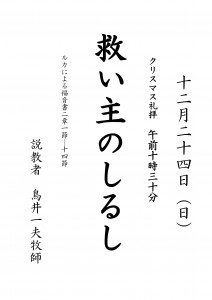 十二月二十四日（日）
クリスマス礼拝　午前十時三十分
救い主のしるし
ルカによる福音書二章一節―十四節
説教者　鳥井一夫牧師